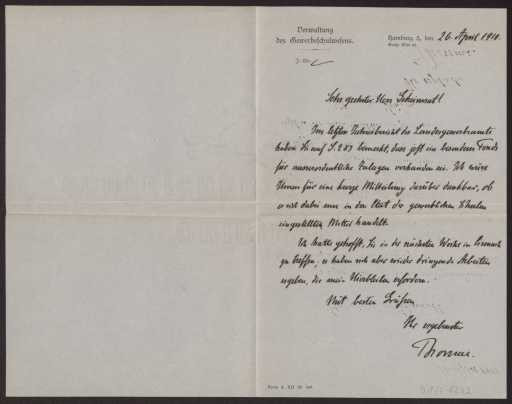 Verwaltung
des Gewerbeschulwesens.
Hamburg 5, den 26. April 1910.
Sehr geehrter Herr
Im letzten des Landesgewerbeamts
haben Sie auf S. 287 bemerkt, dass jetzt ein besonderer Fonds
für ausserordentliche vorhanden sei. Ich wäre
Ihnen für eine kurze Mitteilung darüber dankbar, ob
es sich dabei um in den Etat der gewerblichen Schulen
eingestellten Mittel handelt.
Ich hatte gehofft, Sie in der nächsten Woche in
zu treffen, es haben sich aber wieder dringende Arbeiten
ergeben, die mein Hierbleiben erfordern.
Mit besten Grüssen
Ihr ergebenster
Thomae.